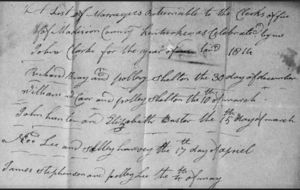 A List of Marrages Returnable to the Clerks office
of Madison County Kentuckey as Celebrated by me
John Clerke for the year 1814
Richard May and polley Shelton the 30 day of december
William and polley Shelton the 10th of march
John hunter and Elizabeth Baxter the 15th day of march
Lee and polley the 17 day of aprel
James Stephenson and polley Lee the of may